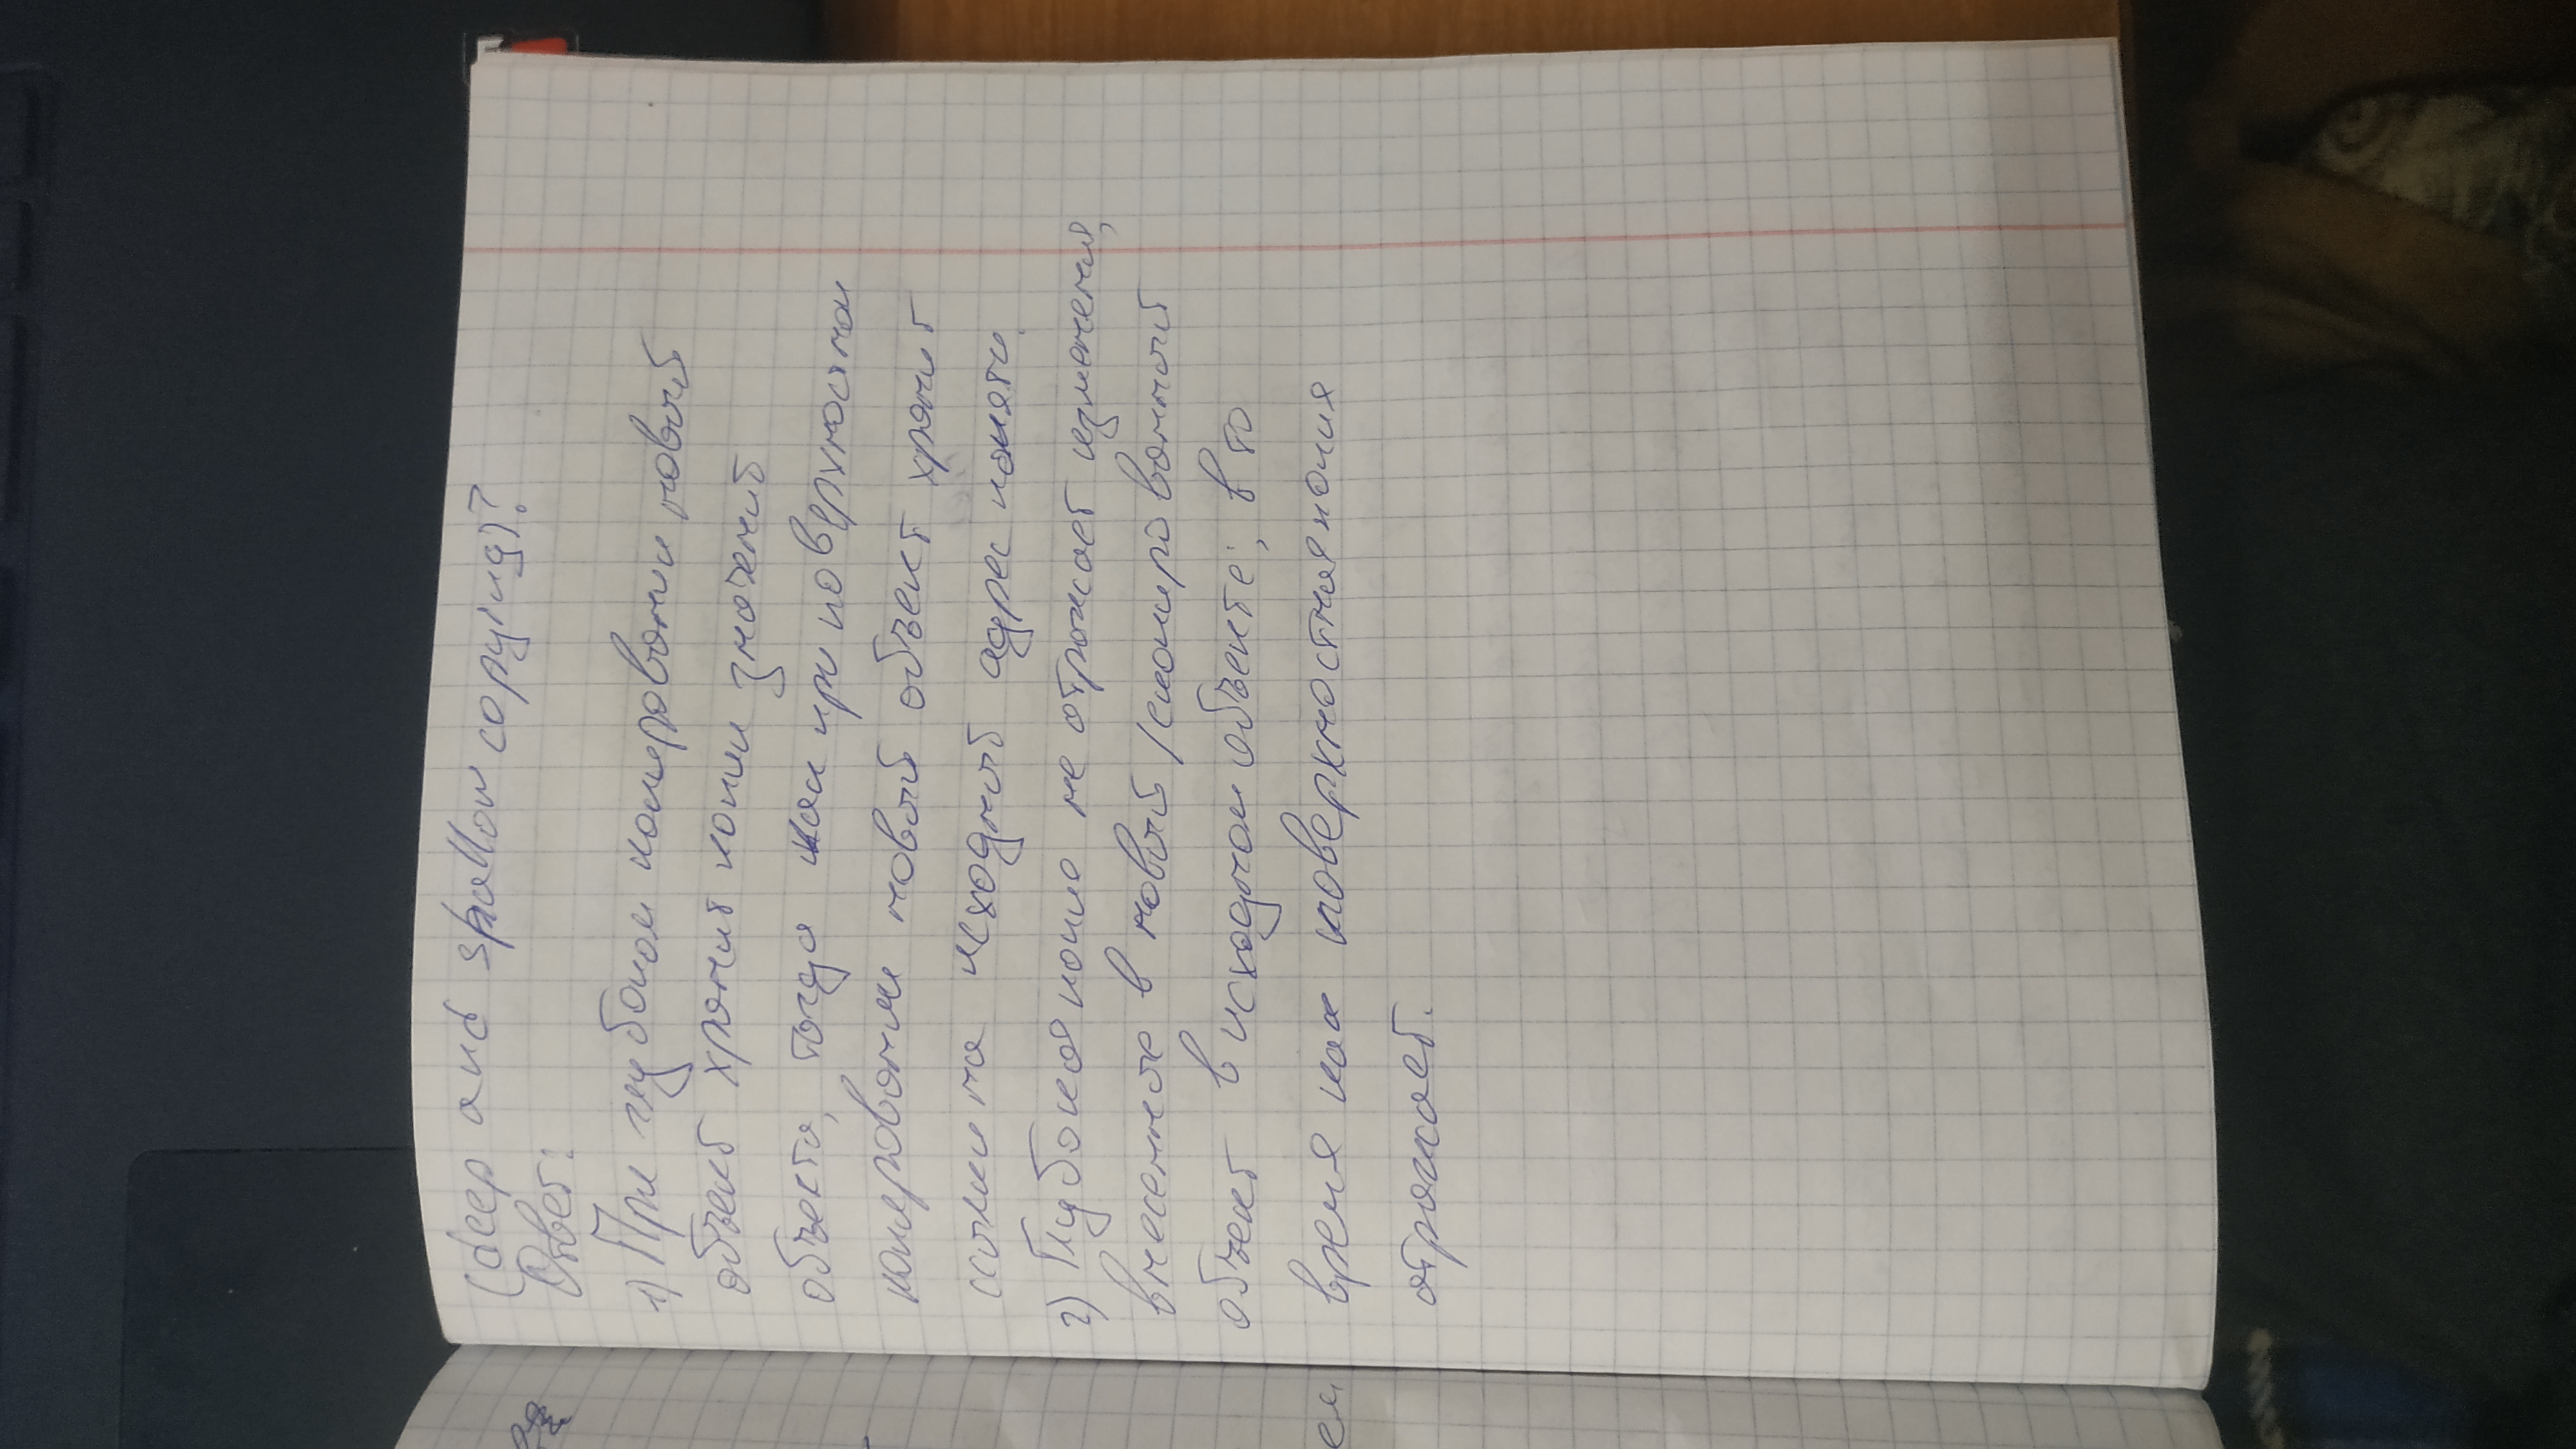 (deep and shallow copying)?
Ответ:
1) При глубоком копировании новый
объект хранит копии значений
объекта, тогда как при поверхностном
копировании новый объект хранит
ссылки на исходный адрес памяти.
2) Глубокая копия не отражает изменения,
внесенные в новый/скопированный
объект в исходном объекте; в то
время как поверхностная копия
отражает.
ем